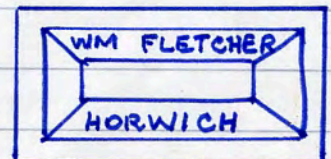 WM FLETCHER
HORWICH